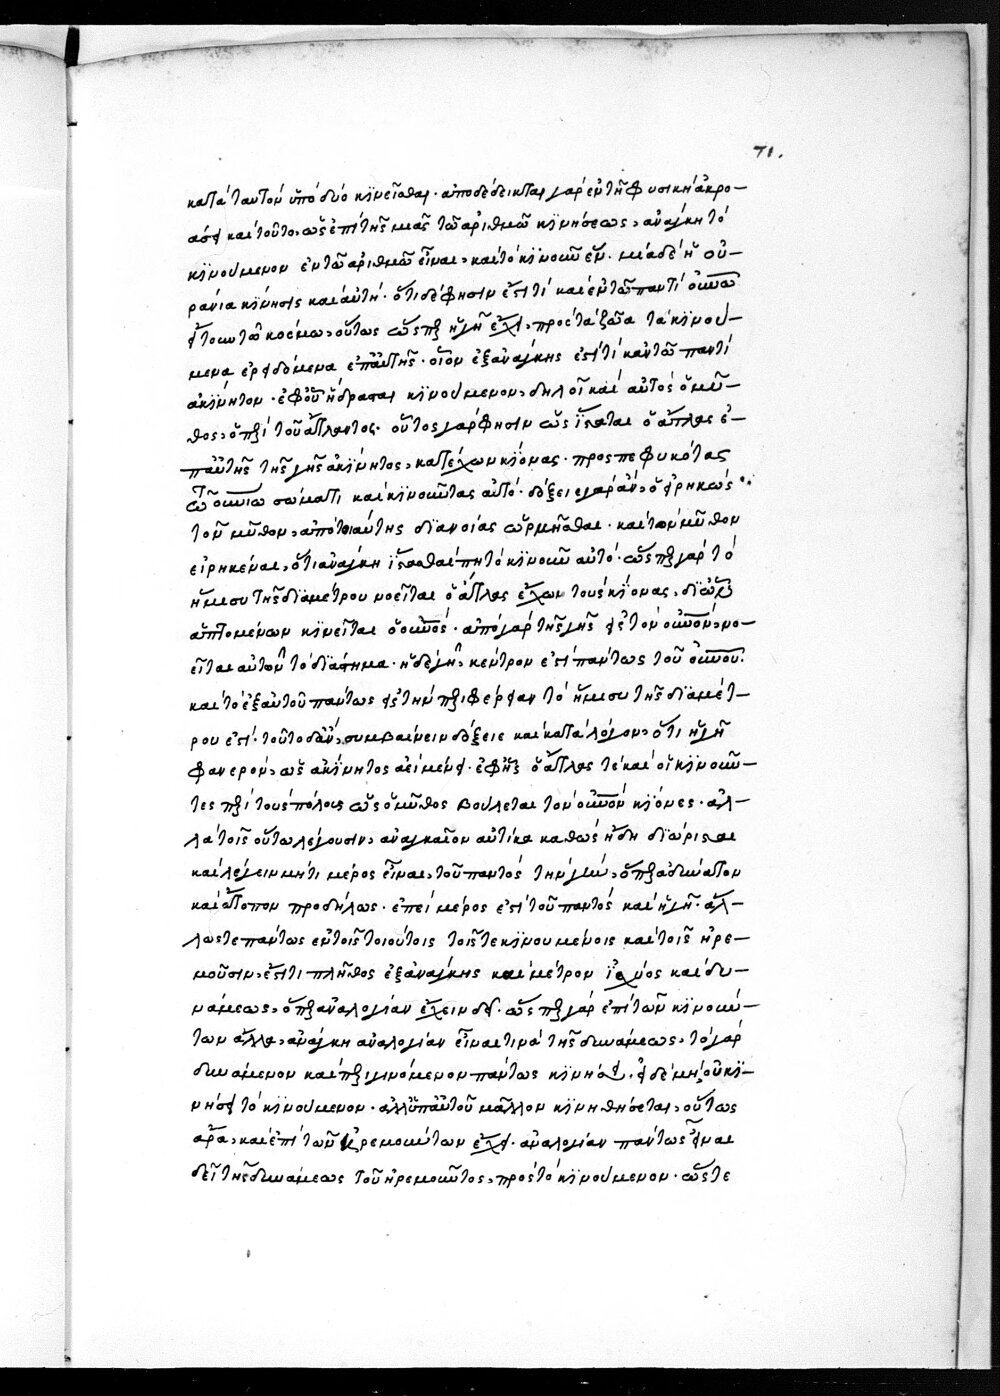 71.
κατὰ ταυτὸν ὑπὸ δύο κϊνεῖσθαι· ἀποδέδεικται γὰρ ἐν τῆ φυσικῆ ἀκρο-
άσει καὶ τοῦτο, ὡς ἐπὶ τῆς μιᾶς τῶ ἀριθμῶ κϊνήσεως, ἀνάγκη τὸ
κϊνούμενον ἓν τῶ ἀριθμῶ εἶναι, καὶ τὸ κϊνοῦν ἕν. μία δὲ ἡ οὐ-
ρανία κίνησις καὶ αὐτή. ὅτι δέ φησιν ἔστι τί καὶ ἐν τῶ παντὶ οὐνῶ
ἤτοι τῶ κόσμω, οὕτως ὥσπερ ἡ γῆ ἔχει, πρὸς τὰ ζῶα τὰ κϊνού-
μενα ἐρειδόμενα ἐπ' αὐτῆς. οἷον ἐξανάγκης ἐστί τι κἀν τῶ παντὶ
ἀκίνητον. ἐφ' οὗ ἥδρασται κϊνούμενον, δηλοῖ καὶ αὐτὸς ὁ μῦ-
θος, ὁ περὶ τοῦ ἄτλαντος. οὗτος γάρ φησιν ὡς ἵσταται ὁ ἄτλας ἐ-
π' αὐτῆς τῆς γῆς ἀκίνητος, κατέχων κίονας. προσπεφυκότας
τῶ οὐνίω σώματι καὶ κϊνοῦντας αὐτό. δόξειε γὰρ ἂν, ὁ εἰρηκὼς
τὸν μῦθον, ἀπὸ τοιαύτης δϊανοίας ὡρμῆσθαι. καὶ τὸν μῦθον
εἰρηκέναι, ὅτι ἀνάγκη ἵστασθαί πη τὸ κϊνοῦν αὐτό. ὥσπερ γὰρ τὸ
ἥμισυ τῆς δϊαμέτρου νοεῖται ὁ ἄτλας ἔχων τοὺς κίονας, δϊ' ὧν
ἁπτομένων κϊνεῖται ὁ οὐνός. ἀπὸ γὰρ τῆς γῆς εἰς τὸν οὐνὸν, νο-
εῖται αὐτῶν τὸ δϊάστημα. ἡ δὲ γῆ κέντρον ἐστὶ πάντως τοῦ οὐνοῦ.
καὶ τὸ ἐξ αὐτοῦ πάντως εἰς τὴν περιφέρειαν τὸ ἥμισυ τῆς δϊαμέτ-
ρου ἐστί. τοῦτο δ' ἂν, συμβαίνειν δόξειε καὶ κατὰ λόγον, ὅτι ἡ γῆ
φανερὸν, ὡς ἀκίνητος ἀεὶ μένει. ἐφ' ἧς ὁ ἄτλας τὲ καὶ οἱ κϊνοῦν-
τες περὶ τοὺς πόλους ὡς ὁ μῦθος βούλεται τὸν οὐνὸν κίονες. ἀλ-
λὰ τοῖς οὕτω λέγουσιν, ἀναγκαῖον αὐτίκα καθὼς ἤδη δϊώρισται
καὶ λέγειν μή τι μέρος εἶναι, τοῦ παντὸς τὴν γῆν, ὅπερ ἀδύνατον
καὶ ἄτοπον προδήλως. ἐπεὶ μέρος ἐστὶ τοῦ παντὸς καὶ ἡ γῆ. ἄλ-
λως τε πάντως ἐν τοῖς τοιούτοις τοῖς τε κϊνουμένοις καὶ τοῖς ἠρε-
μοῦσιν, ἔστι τι πλῆθος ἐξανάγκης καὶ μέτρον ἰσχύος καὶ δυ-
νάμεως, ὅπερ ἀναλογίαν ἔχειν δεῖ. ὥσπερ γὰρ ἐπὶ τῶν κϊνούν-
των ἄλλα, ἀνάγκη ἀναλογίαν εἶναι τινὰ τῆς δυνάμεως, τὸ γὰρ
δυνάμενον καὶ περιγινόμενον πάντως κϊνήσει. εἰ δὲ μὴ, οὐ κϊ-
νήσει τὸ κϊνούμενον. ἀλλ' ὑπ' αὐτοῦ μᾶλλον κϊνηθήσεται, οὕτως
ἄρα, καὶ ἐπὶ τῶν ἠρεμούντων ἔχει. ἀναλογίαν πάντως εἶναι
δεῖ τῆς δυνάμεως τοῦ ἠρεμοῦντος, πρὸς τὸ κϊνούμενον. ὥστε